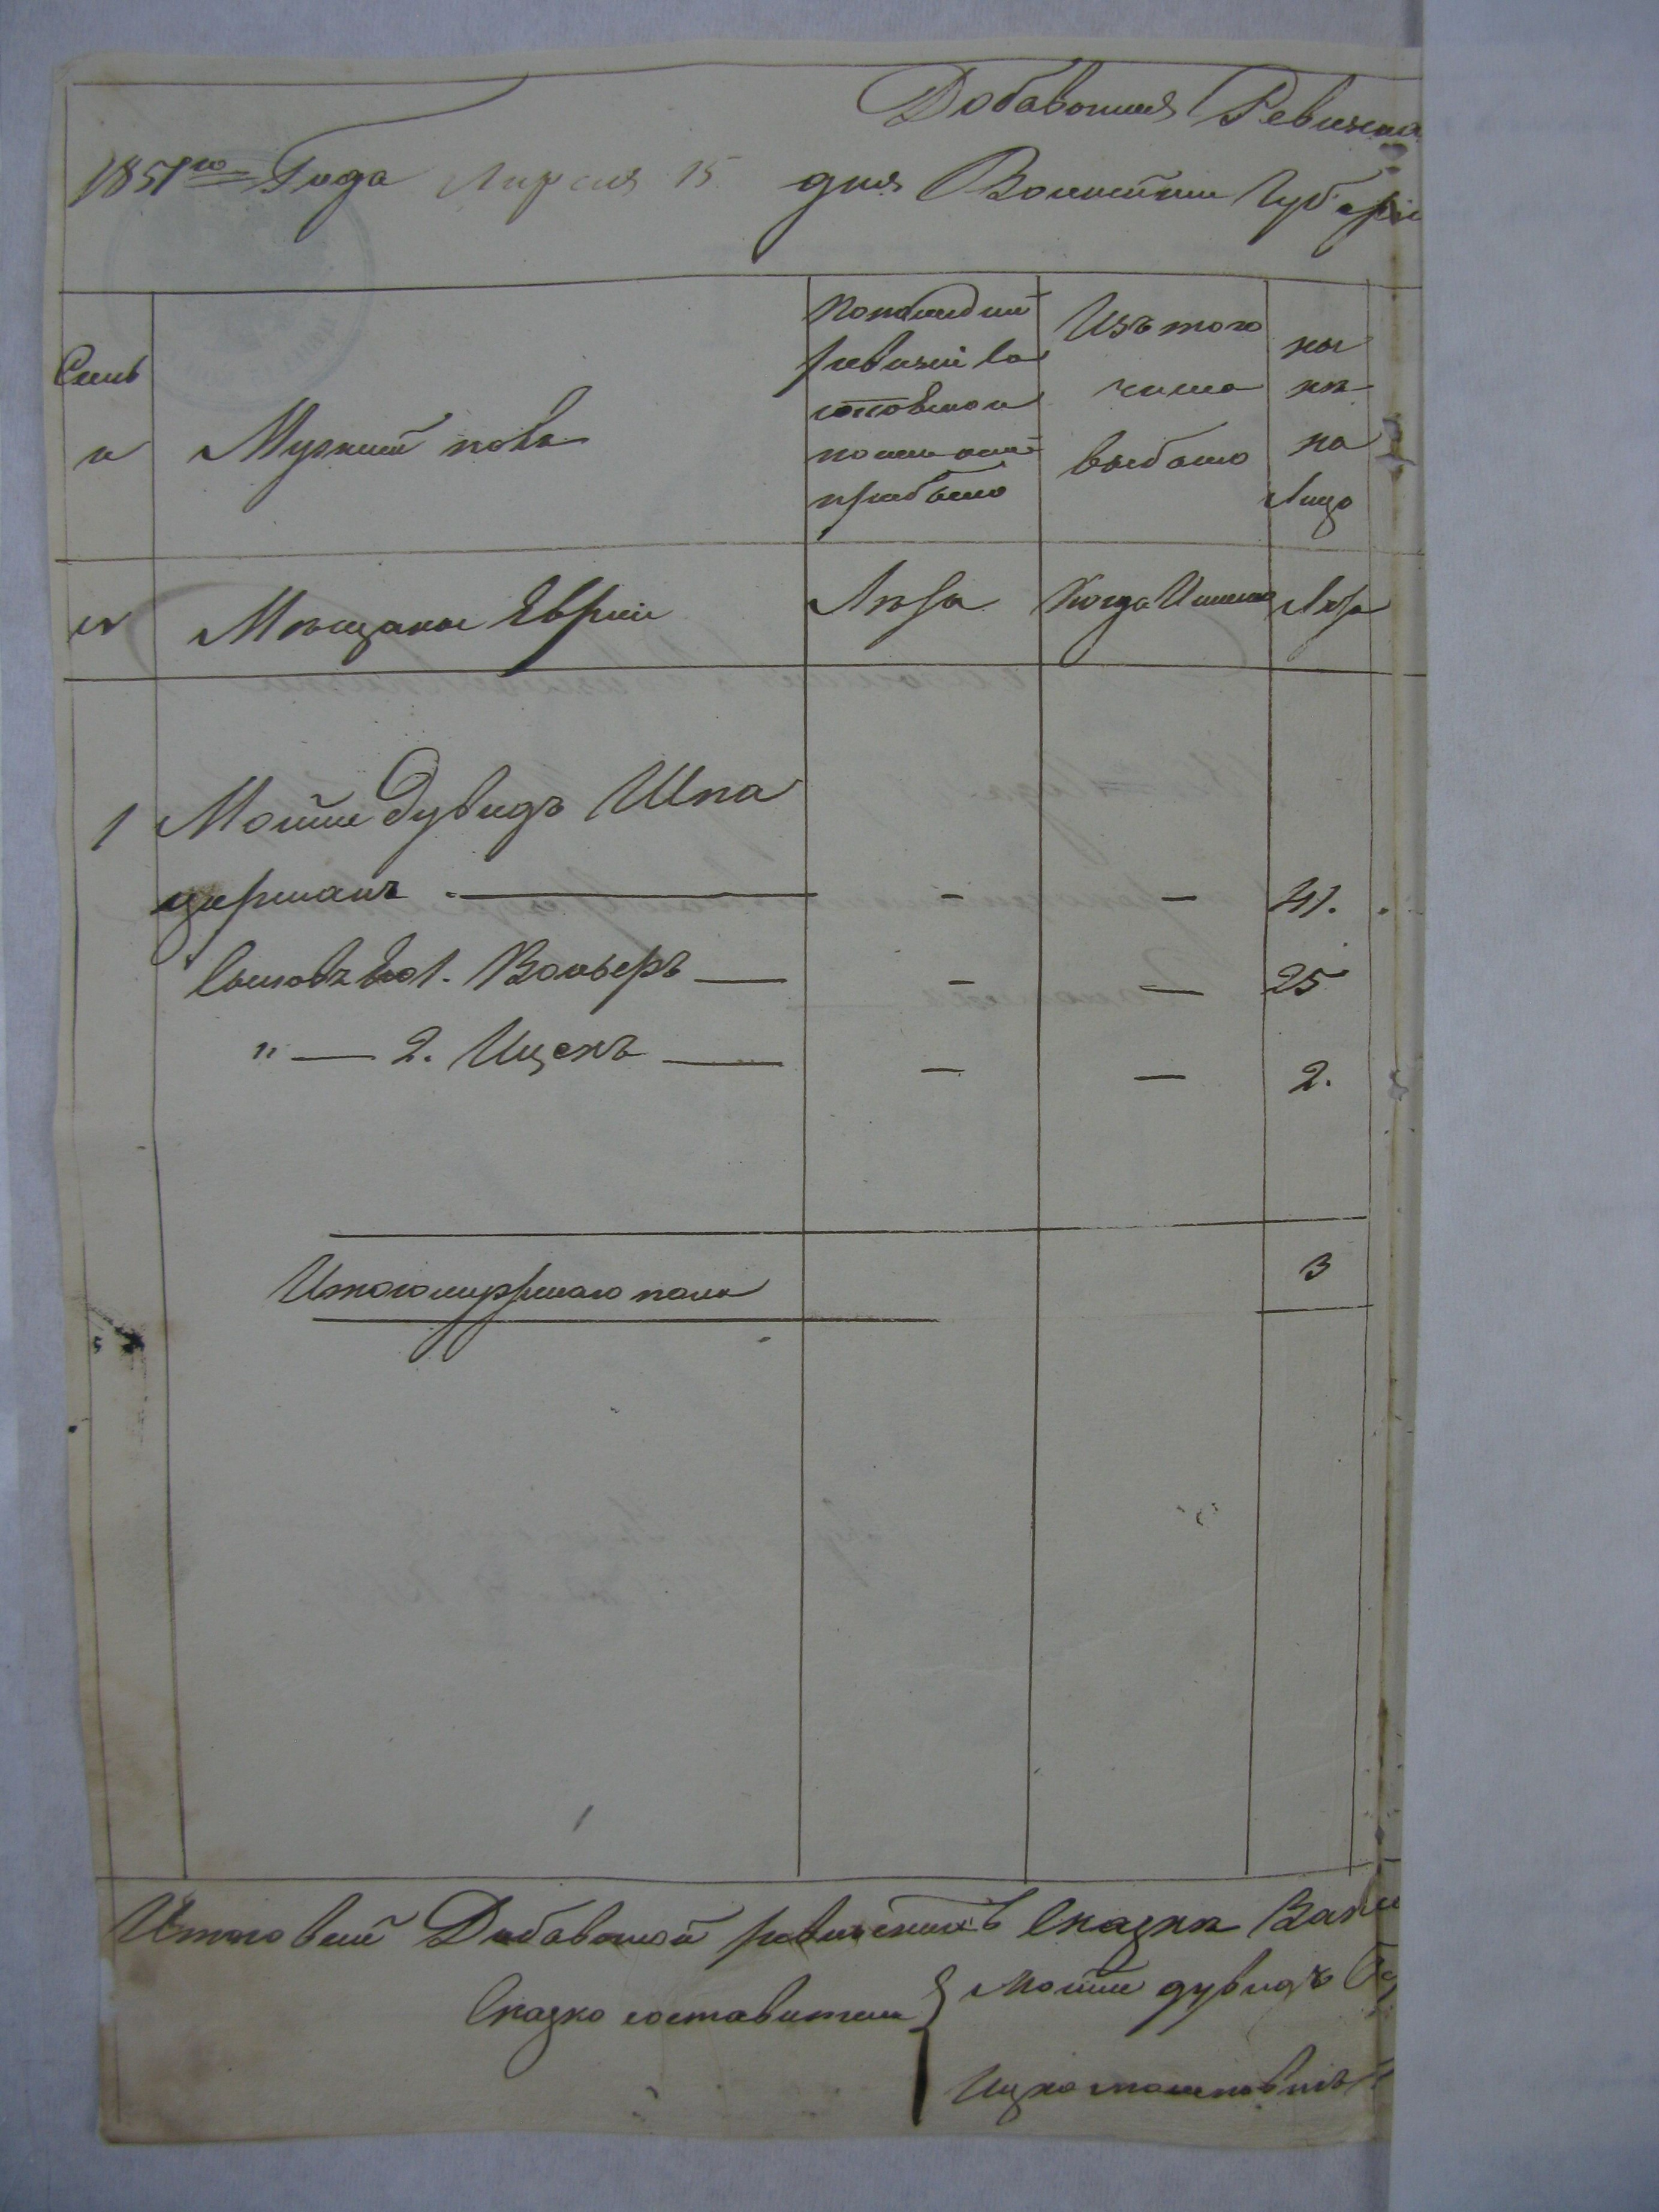 Добавочная Ревизская
1851го Года Апреля 15 дня Волынской Губерніи
Семьи
Мужский полъ
По последней
ревизіи
состояло и
после оной
прибыло
Изъ того
числа
выбыло
ны
нѣ
на
лицо
Мѣщане Евреи
Лѣта
Когда Именно
Лѣта
1 Мойше Дувидъ Шпа
церманъ — — — 41.
Сыновья его 1. Вольверъ — — — 25
" — 2. Ицекъ — — — 2.
Итого мужеска пола 3
Итого въ сей Добавочной ревизской Сказкѣ
Сказко составители Мойше Дувидъ
Ицко Мошковичъ